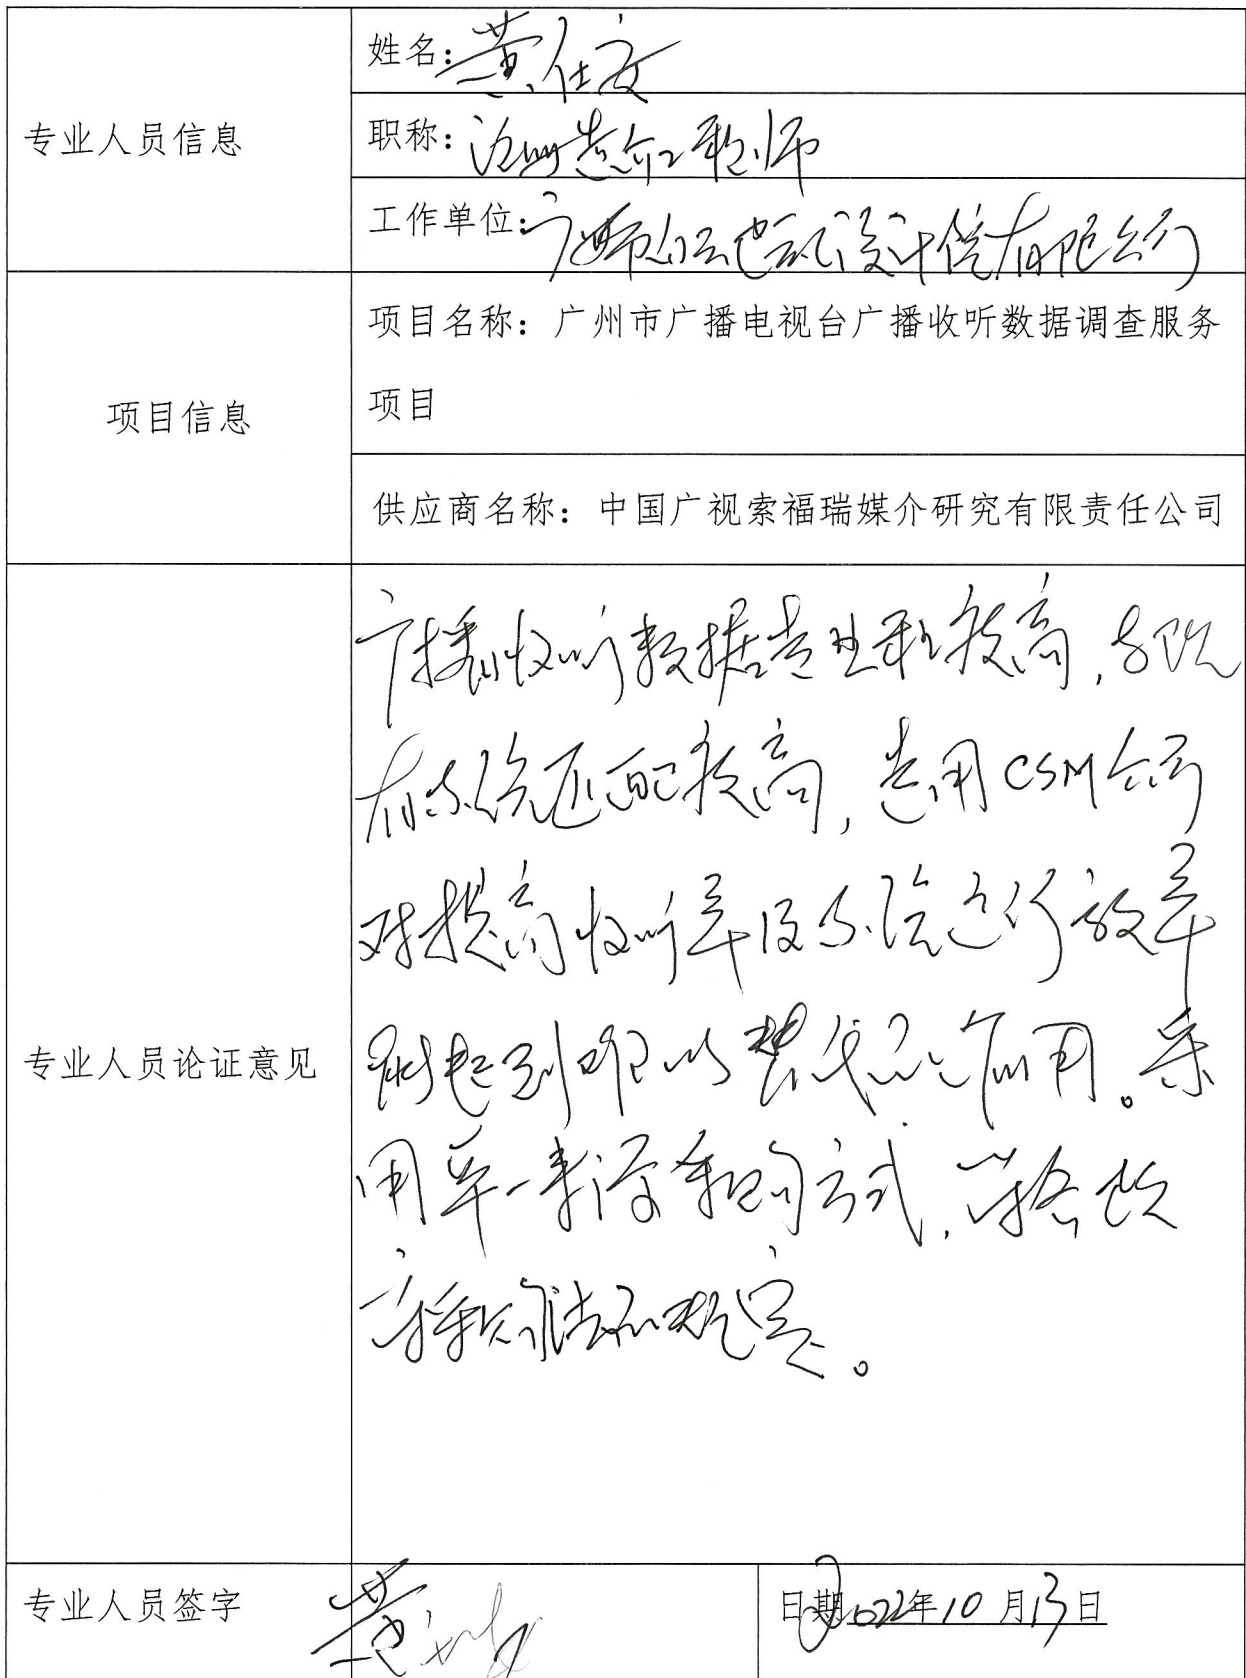 专业人员信息
姓名：黄仕文
职称：注册造价工程师
工作单位：广州市白云 设计院有限公司
项目信息
项目名称：广州市广播电视台广播收听数据调查服务
项目
供应商名称：中国广视索福瑞媒介研究有限责任公司
专业人员论证意见
广播收听数据专业程度较高，与现
有系统匹配较高，选用CSM公司
对提高收听率及系统运行效率
能起到难以替代的作用。采
用单一来源采购方式，符合政
府采购法的规定。
专业人员签字 黄仕文
日期2022年10月13日